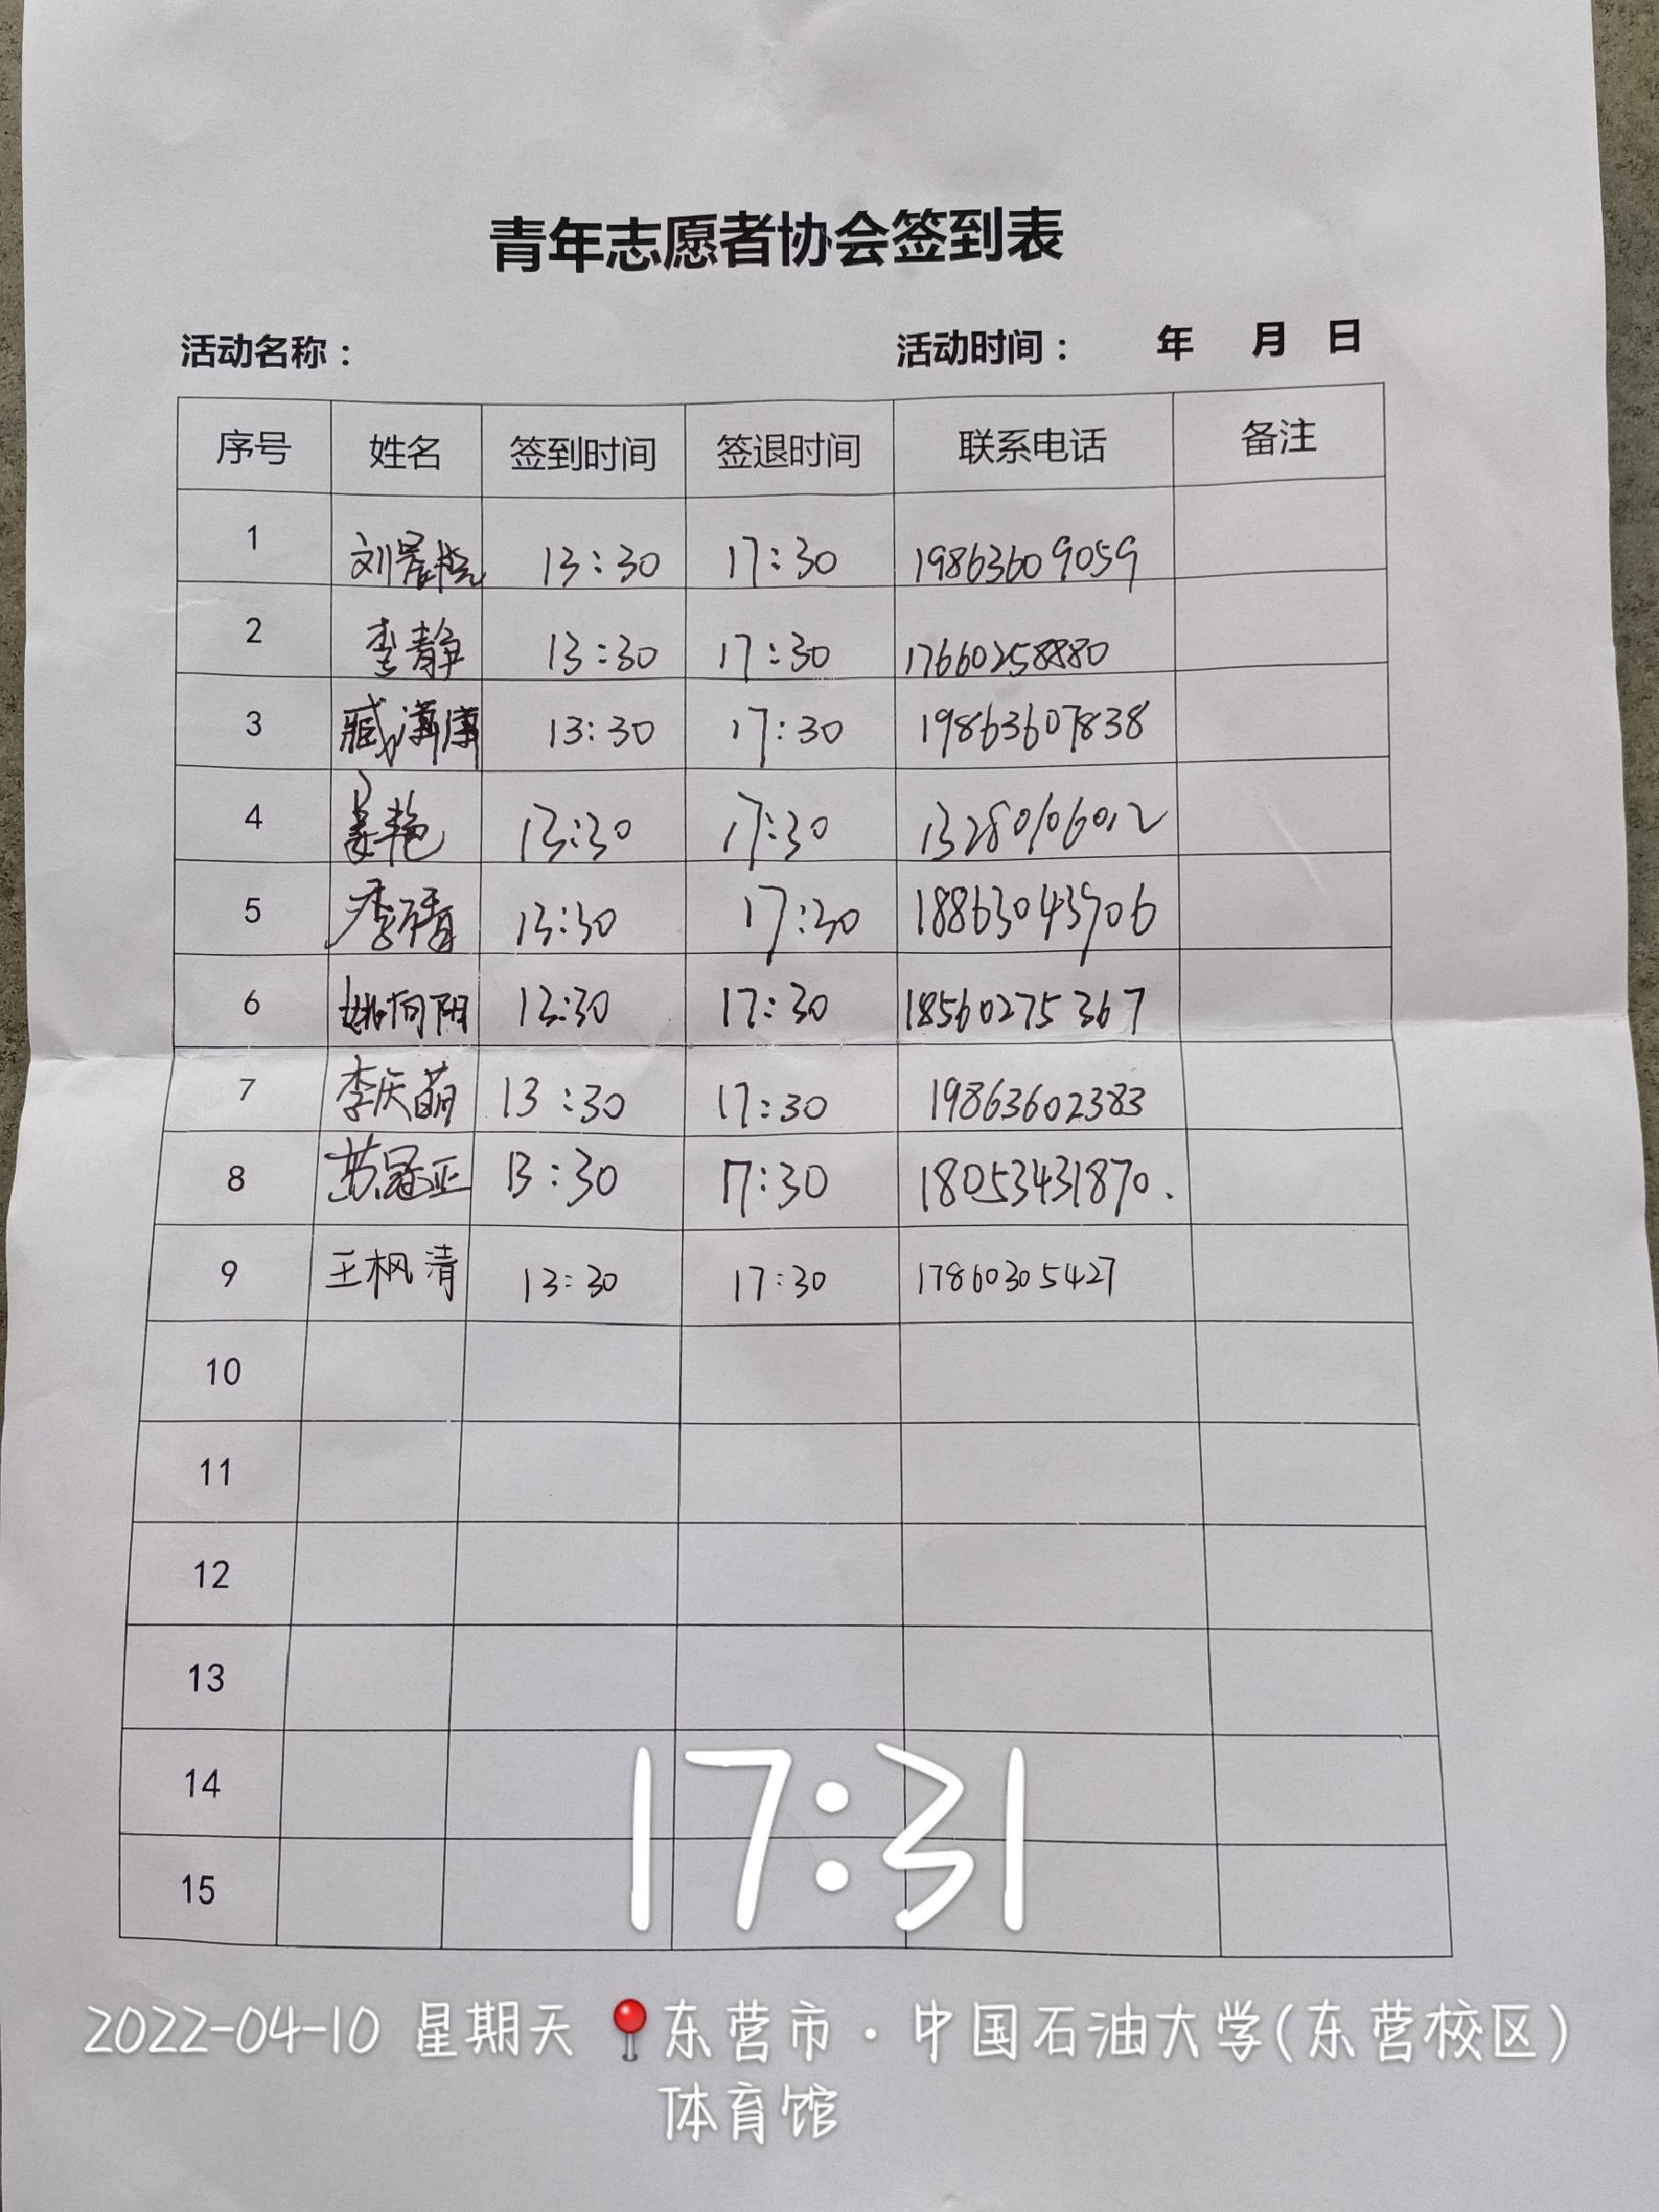 青年志愿者协会签到表
活动名称： 活动时间： 年 月 日
序号 姓名 签到时间 签退时间 联系电话 备注
1 刘 13:30 17:30 19863609059
2 李静 13:30 17:30 17660258880
3 臧潇潇 13:30 17:30 19863607838
4 姜艳 13:30 17:30 13280106012
5 李倩 13:30 17:30 18863043906
6 姚向阳 13:30 17:30 18560275367
7 李庆萌 13:30 17:30 19863602383
8 苏冠亚 13:30 17:30 18053431870.
9 王枫清 13:30 17:30 17860305427
10
11
12
13
14
15
17:31
2022-04-10 星期天 东营市·中国石油大学(东营校区)
体育馆